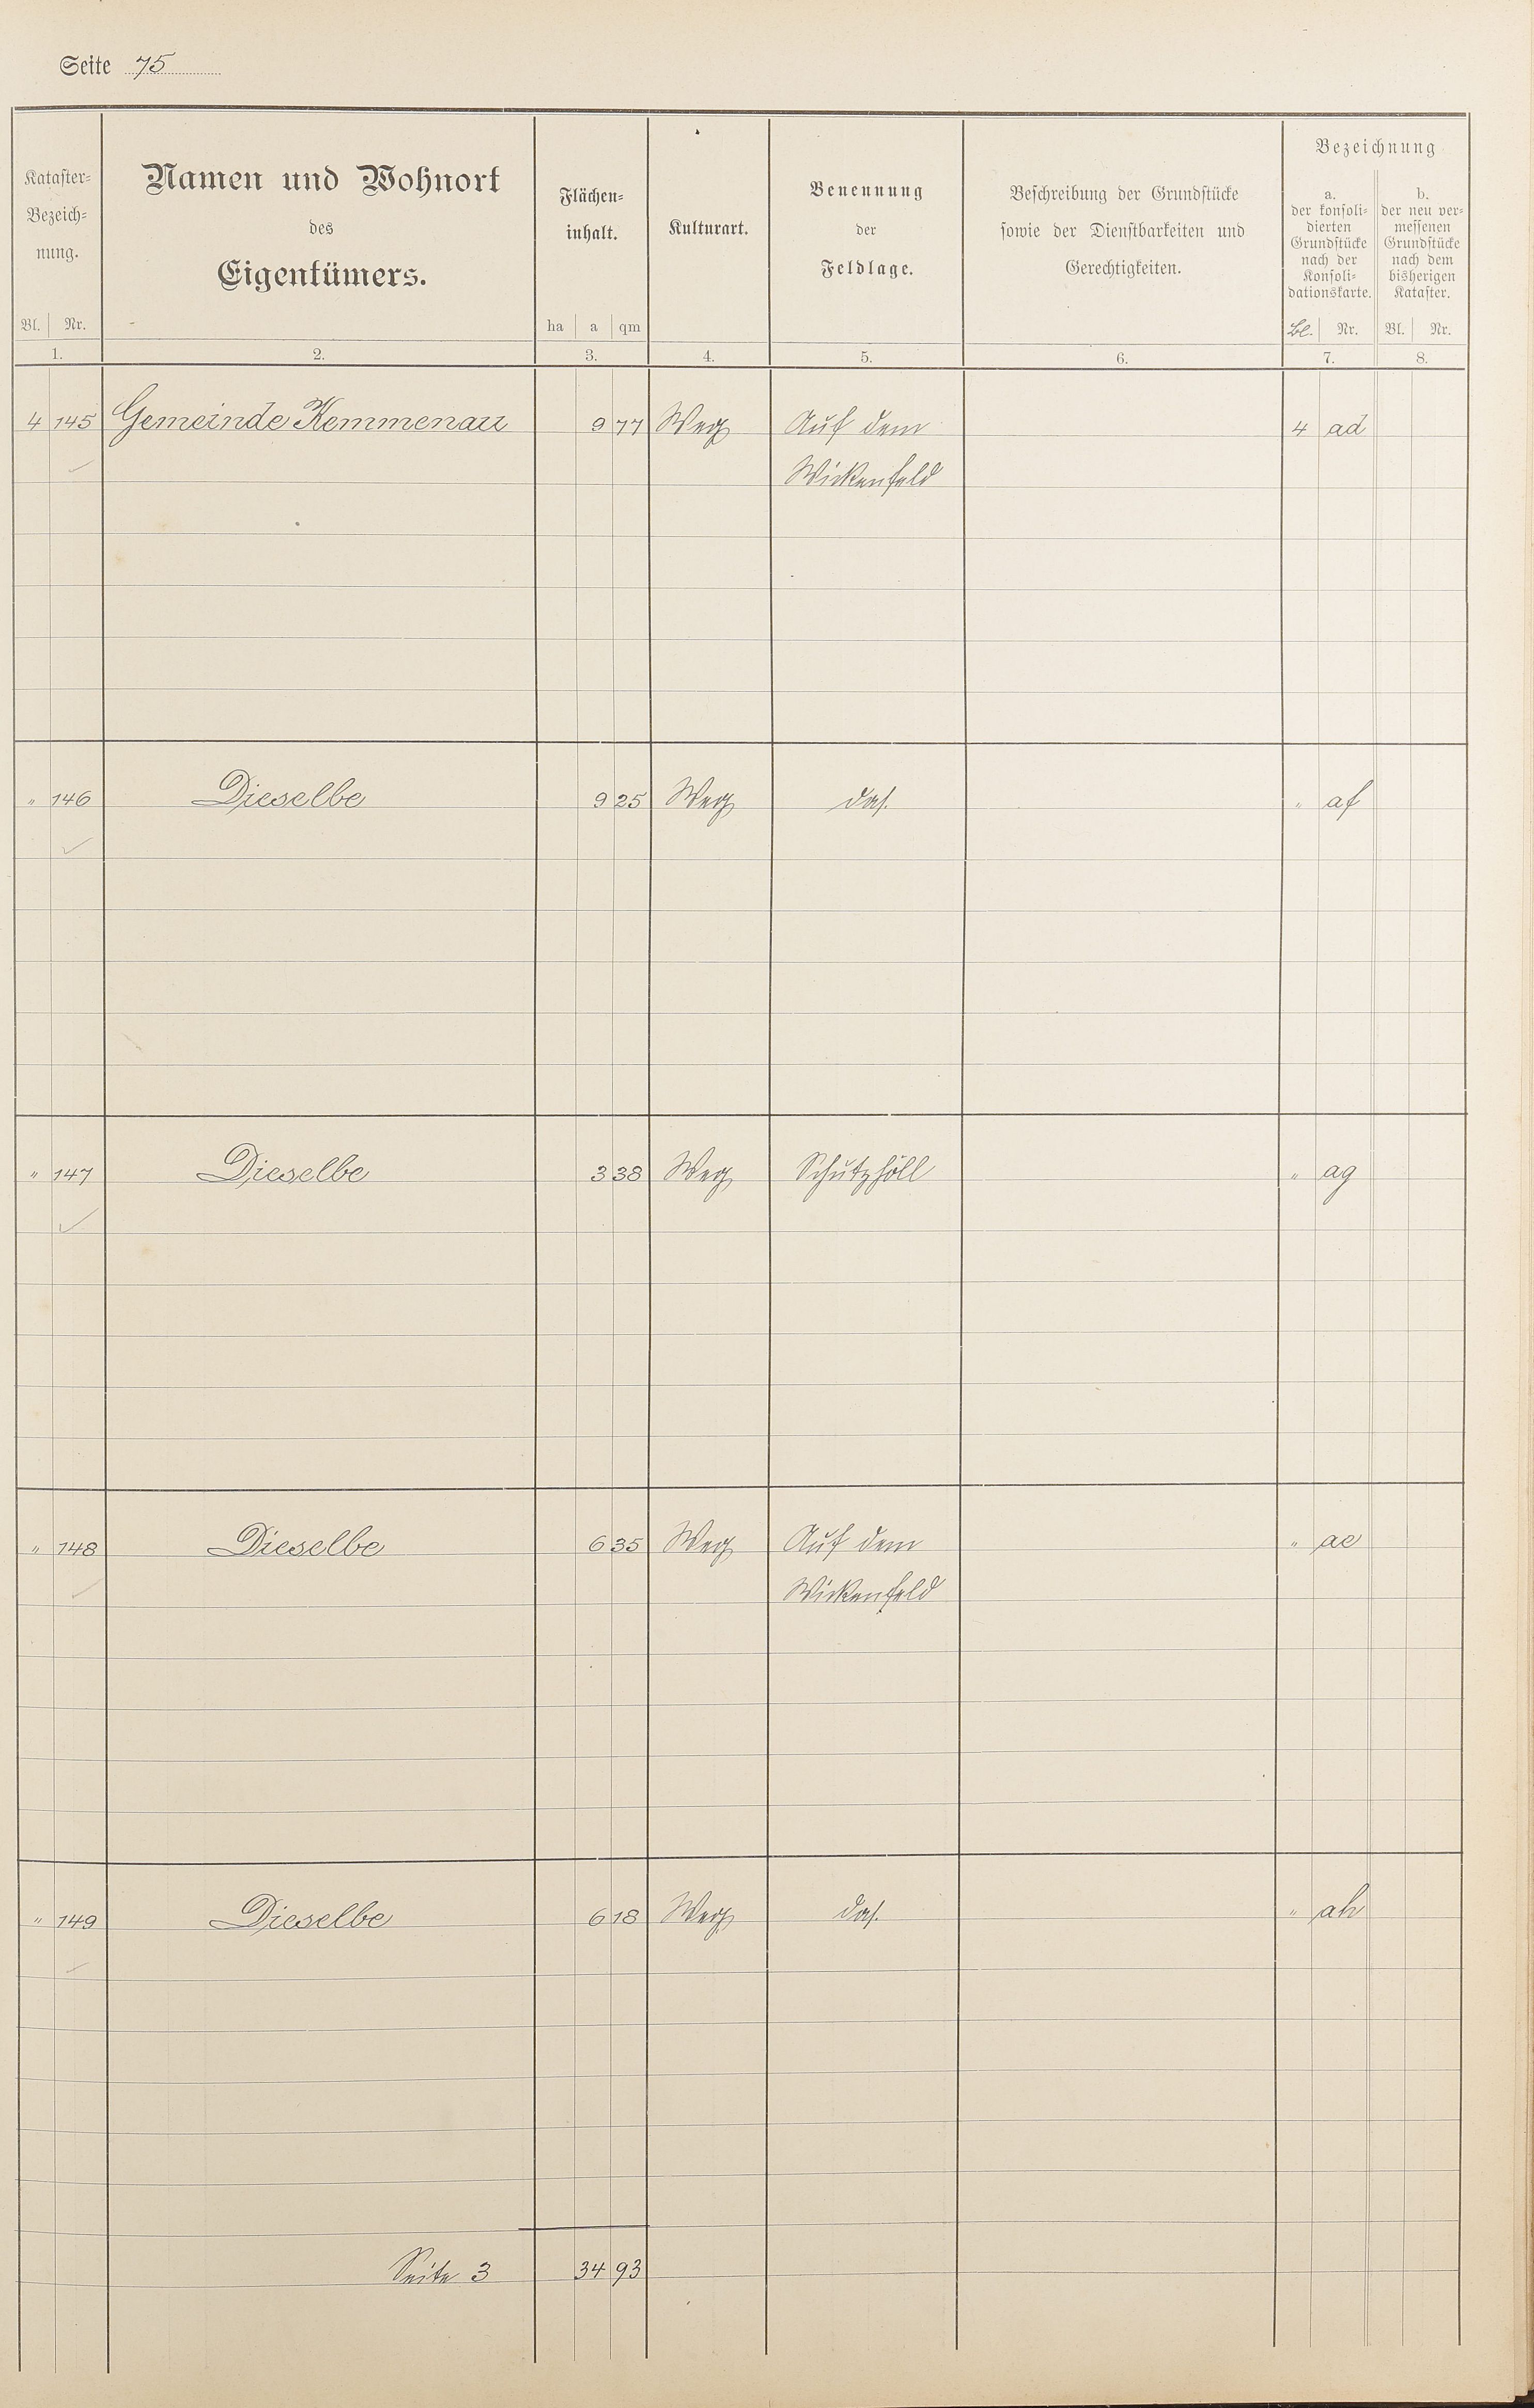 Seite 75
Kataster=
Bezeich=
nung.
Bl. Nr.
1.
Namen und Wohnort
des
Eigentümers.
2.
Flächen=
inhalt.
ha a qm
3.
Kulturart.
4.
Benennung
der
Feldlage.
5.
Beschreibung der Grundstücke
sowie der Dienstbarkeiten und
Gerechtigkeiten.
6.
Bezeichnung
a.
der konsoli=
dierten
Grundstücke
nach der
Konsoli=
dationskarte.
Bl. Nr.
7.
b.
der neu ver=
messenen
Grundstücke
nach dem
bisherigen
Kataster.
Bl. Nr.
8.
4 145 Gemeinde Kemmenau 9 77 Weg Auf dem 4 ad
Wickenfeld
" 146 Dieselbe 9 25 Weg das. " af
" 147 Dieselbe 3 38 Weg Schutzhöll " ag
" 148 Dieselbe 6 35 Weg Auf dem " ae
Wickenfeld
" 149 Dieselbe 6 18 Weg das. " ah
Seite 3 34 93